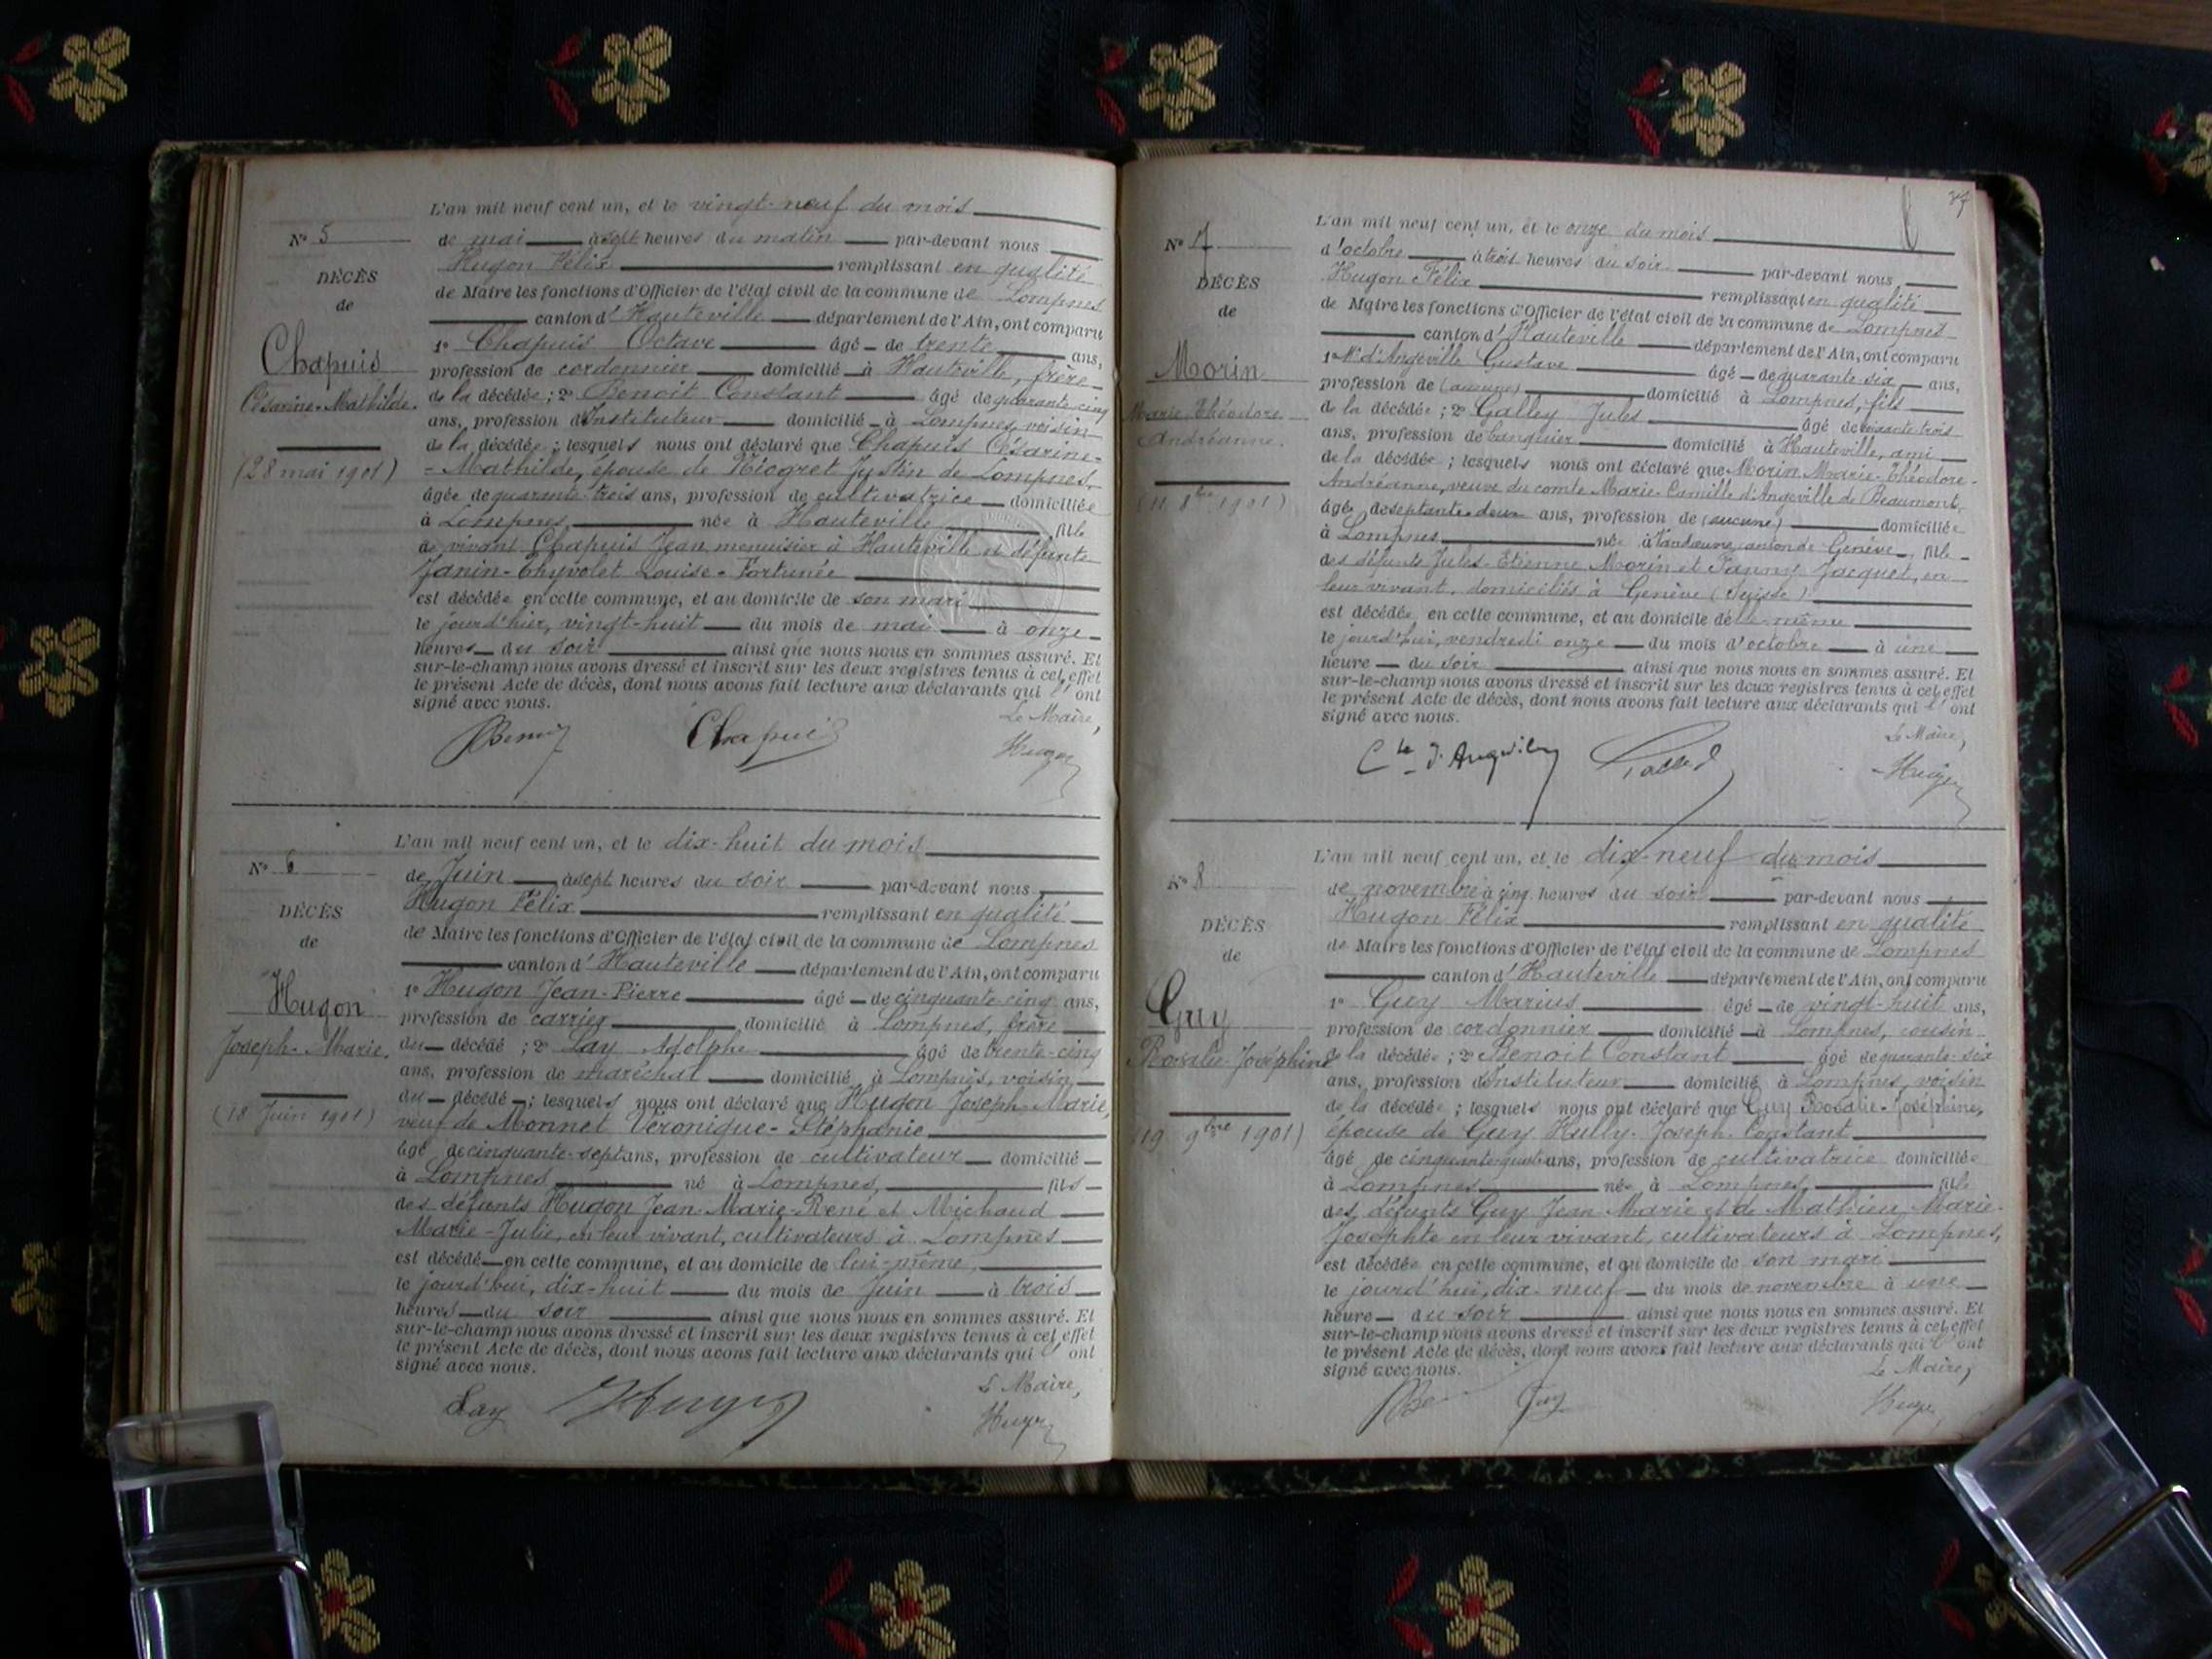 L'an mil neuf cent un, et le vingt-neuf du mois
N° 5
de mai à sept heures du matin par-devant nous
Hugon Félix remplissant en qualité
DÉCÈS
de Maire les fonctions d'Officier de l'état civil de la commune de Lompnes
de
canton d'Hauteville département de l'Ain, ont comparu
1° Chapuis Octave âgé de trente ans,
Chapuis
profession de cordonnier domicilié à Hauteville, frère
Césarine-Mathilde.
de la décédée ; 2° Benoit Constant âgé de quarante-cinq
ans, profession d'Instituteur domicilié à Lompnes, voisin
de la décédée ; lesquels nous ont déclaré que Chapuis Césarine-
(28 mai 1901)
-Mathilde, épouse de Nicgret Justin de Lompnes,
âgée de quarante-trois ans, profession de cultivatrice domiciliée
à Lompnes, née à Hauteville fille
de vivant Chapuis Jean, menuisier à Hauteville et défunte
Janin-Thyvolet Louise-Fortunée
est décédée en cette commune, et au domicile de son mari
le jourd'hier, vingt-huit du mois de mai à onze
heures du soir ainsi que nous nous en sommes assuré. Et
sur-le-champ nous avons dressé et inscrit sur les deux registres tenus à cet effet
le présent Acte de décès, dont nous avons fait lecture aux déclarants qui l'ont
signé avec nous.
Le Maire,
Chapuis
Hugon
L'an mil neuf cent un, et le dix-huit du mois
N° 6
de Juin à sept heures du soir par-devant nous
Hugon Félix remplissant en qualité
DÉCÈS
de Maire les fonctions d'Officier de l'état civil de la commune de Lompnes
de
canton d'Hauteville département de l'Ain, ont comparu
1° Hugon Jean-Pierre âgé de cinquante-cinq ans,
Hugon
profession de carrier domicilié à Lompnes, frère
Joseph-Marie.
du décédé ; 2° Lay Adolphe âgé de trente-cinq
ans, profession de maréchal domicilié à Lompnes, voisin
du décédé ; lesquels nous ont déclaré que Hugon Joseph-Marie,
(18 Juin 1901)
veuf de Monnet Véronique-Stéphanie
âgé de cinquante-sept ans, profession de cultivateur domicilié
à Lompnes né à Lompnes, fils
des défunts Hugon Jean-Marie-René et Michaud
Marie-Julie, en leur vivant, cultivateurs à Lompnes
est décédé en cette commune, et au domicile de lui-même,
le jourd'hui, dix-huit du mois de Juin à trois
heures du soir ainsi que nous nous en sommes assuré. Et
sur-le-champ nous avons dressé et inscrit sur les deux registres tenus à cet effet
le présent Acte de décès, dont nous avons fait lecture aux déclarants qui l'ont
signé avec nous.
Le Maire,
Lay Hugon
Hugon
L'an mil neuf cent un, et le onze du mois
N° 7
d'octobre à trois heures du soir par-devant nous
Hugon Félix remplissant en qualité
DÉCÈS
de Maire les fonctions d'Officier de l'état civil de la commune de Lompnes
de
canton d'Hauteville département de l'Ain, ont comparu
1° Mr d'Angeville Gustave âgé de quarante-six ans,
Morin
profession de (aucune) domicilié à Lompnes, fils
Marie-Théodore-
de la décédée ; 2° Galley Jules âgé de soixante-trois
Andréanne.
ans, profession de banquier domicilié à Hauteville, ami
de la décédée ; lesquels nous ont déclaré que Morin Marie-Théodore-
Andréanne, veuve du comte Marie-Camille d'Angeville de Beaumont,
(11 8bre 1901)
âgée de septante-deux ans, profession de (aucune) domiciliée
à Lompnes née à Vandœuvre, canton de Genève, fille
des défunts Jules-Etienne Morin et Fanny Jacquet, en
leur vivant, domiciliés à Genève (Suisse)
est décédée en cette commune, et au domicile de le même
le jourd'hui, vendredi onze du mois d'octobre à une
heure du soir ainsi que nous nous en sommes assuré. Et
sur-le-champ nous avons dressé et inscrit sur les deux registres tenus à cet effet
le présent Acte de décès, dont nous avons fait lecture aux déclarants qui l'ont
signé avec nous.
Le Maire,
Cte d'Angeville
Hugon
L'an mil neuf cent un, et le dix-neuf du mois
N° 8
de novembre à cinq heures du soir par-devant nous
Hugon Félix remplissant en qualité
DÉCÈS
de Maire les fonctions d'Officier de l'état civil de la commune de Lompnes
de
canton d'Hauteville département de l'Ain, ont comparu
1° Guy Marius âgé de vingt-huit ans,
Guy
profession de cordonnier domicilié à Lompnes, cousin
Rosalie-Joséphine
de la décédée ; 2° Benoit Constant âgé de quarante-six
ans, profession d'Instituteur domicilié à Lompnes, voisin
de la décédée ; lesquels nous ont déclaré que Guy Rosalie-Joséphine,
(19 9bre 1901)
épouse de Guy Hully-Joseph-Constant
âgé de cinquante-quatre ans, profession de cultivatrice domiciliée
à Lompnes née à Lompnes, fille
des défunts Guy Jean-Marie et de Mathieu Marie-
Josephte en leur vivant, cultivateurs à Lompnes,
est décédée en cette commune, et au domicile de son mari
le jourd'hui, dix-neuf du mois de novembre à une
heure du soir ainsi que nous nous en sommes assuré. Et
sur-le-champ nous avons dressé et inscrit sur les deux registres tenus à cet effet
le présent Acte de décès, dont nous avons fait lecture aux déclarants qui l'ont
signé avec nous.
Le Maire,
Guy
Hugon